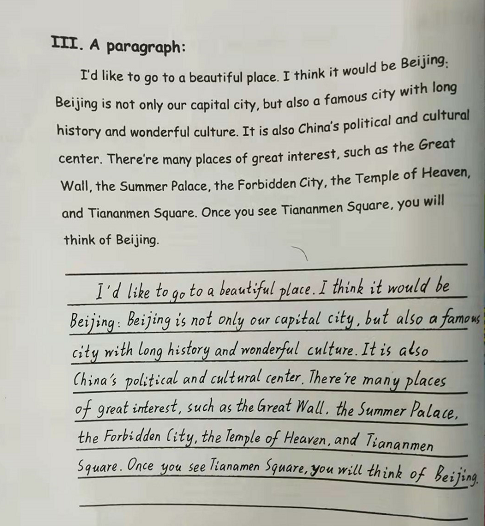 III. A paragraph:
I'd like to go to a beautiful place. I think it would be Beijing.
Beijing is not only our capital city, but also a famous city with long
history and wonderful culture. It is also China's political and cultural
center. There're many places of great interest, such as the Great
Wall, the Summer Palace, the Forbidden City, the Temple of Heaven,
and Tiananmen Square. Once you see Tiananmen Square, you will
think of Beijing.
I'd like to go to a beautiful place. I think it would be
Beijing. Beijing is not only our capital city, but also a famous
city with long history and wonderful culture. It is also
China's political and cultural center. There're many places
of great interest, such as the Great Wall. the Summer Palace,
the Forbidden City, the Temple of Heaven, and Tiananmen
Square. Once you see Tianamen Square, you will think of Beijing.